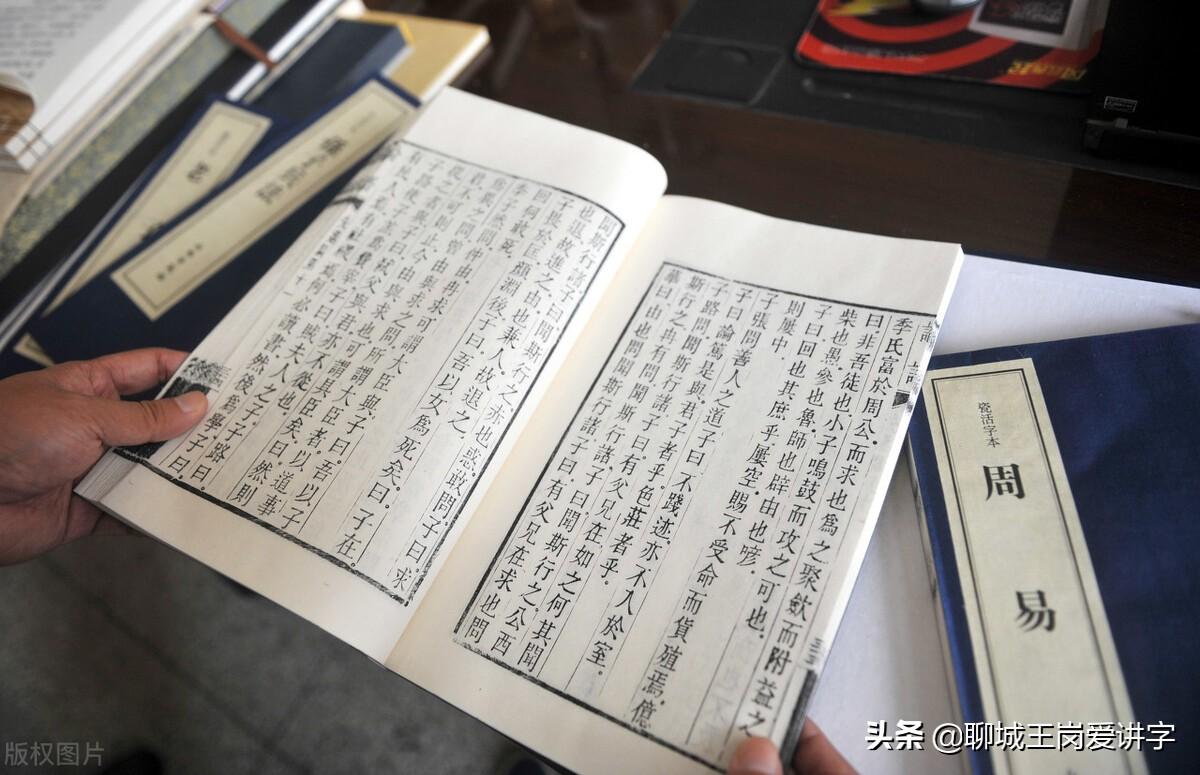 季氏富於周公。而求也爲之聚斂而附益之
曰。非吾徒也。小子鳴鼓而攻之可也。
柴也愚。參也魯。師也辟。由也喭。
子曰。回也其庶乎。屢空。賜不受命而貨殖焉。億
則屢中。
子張問善人之道。子曰。不踐迹。亦不入於室。
子曰。論篤是與。君子者乎。色莊者乎。
子路問。聞斯行諸。子曰。有父兄在。如之何其聞
斯行之。冉有問。聞斯行諸。子曰。聞斯行之。公西
華曰。由也問聞斯行諸。子曰。有父兄在。求也問
聞斯行諸。子曰。聞斯行之。赤也惑。敢問。子曰。求
也退。故進之。由也兼人。故退之。
子畏於匡。顏淵後。子曰。吾以女爲死矣。曰。子在。
回何敢死。
季子然問。仲由冉求可謂大臣與。子曰。吾以子
爲異之問。曾由與求之問。所謂大臣者。以道事
君。不可則止。今由與求也。可謂具臣矣。曰。然則
從之者與。子曰。弒父與君。亦不從也。
子路使子羔爲費宰。子曰。賊夫人之子。子路曰。
有民人焉。有社稷焉。何必讀書。然後爲學。子曰。
瓷活字本
周易
版权图片
头条 @聊城王岗爱讲字